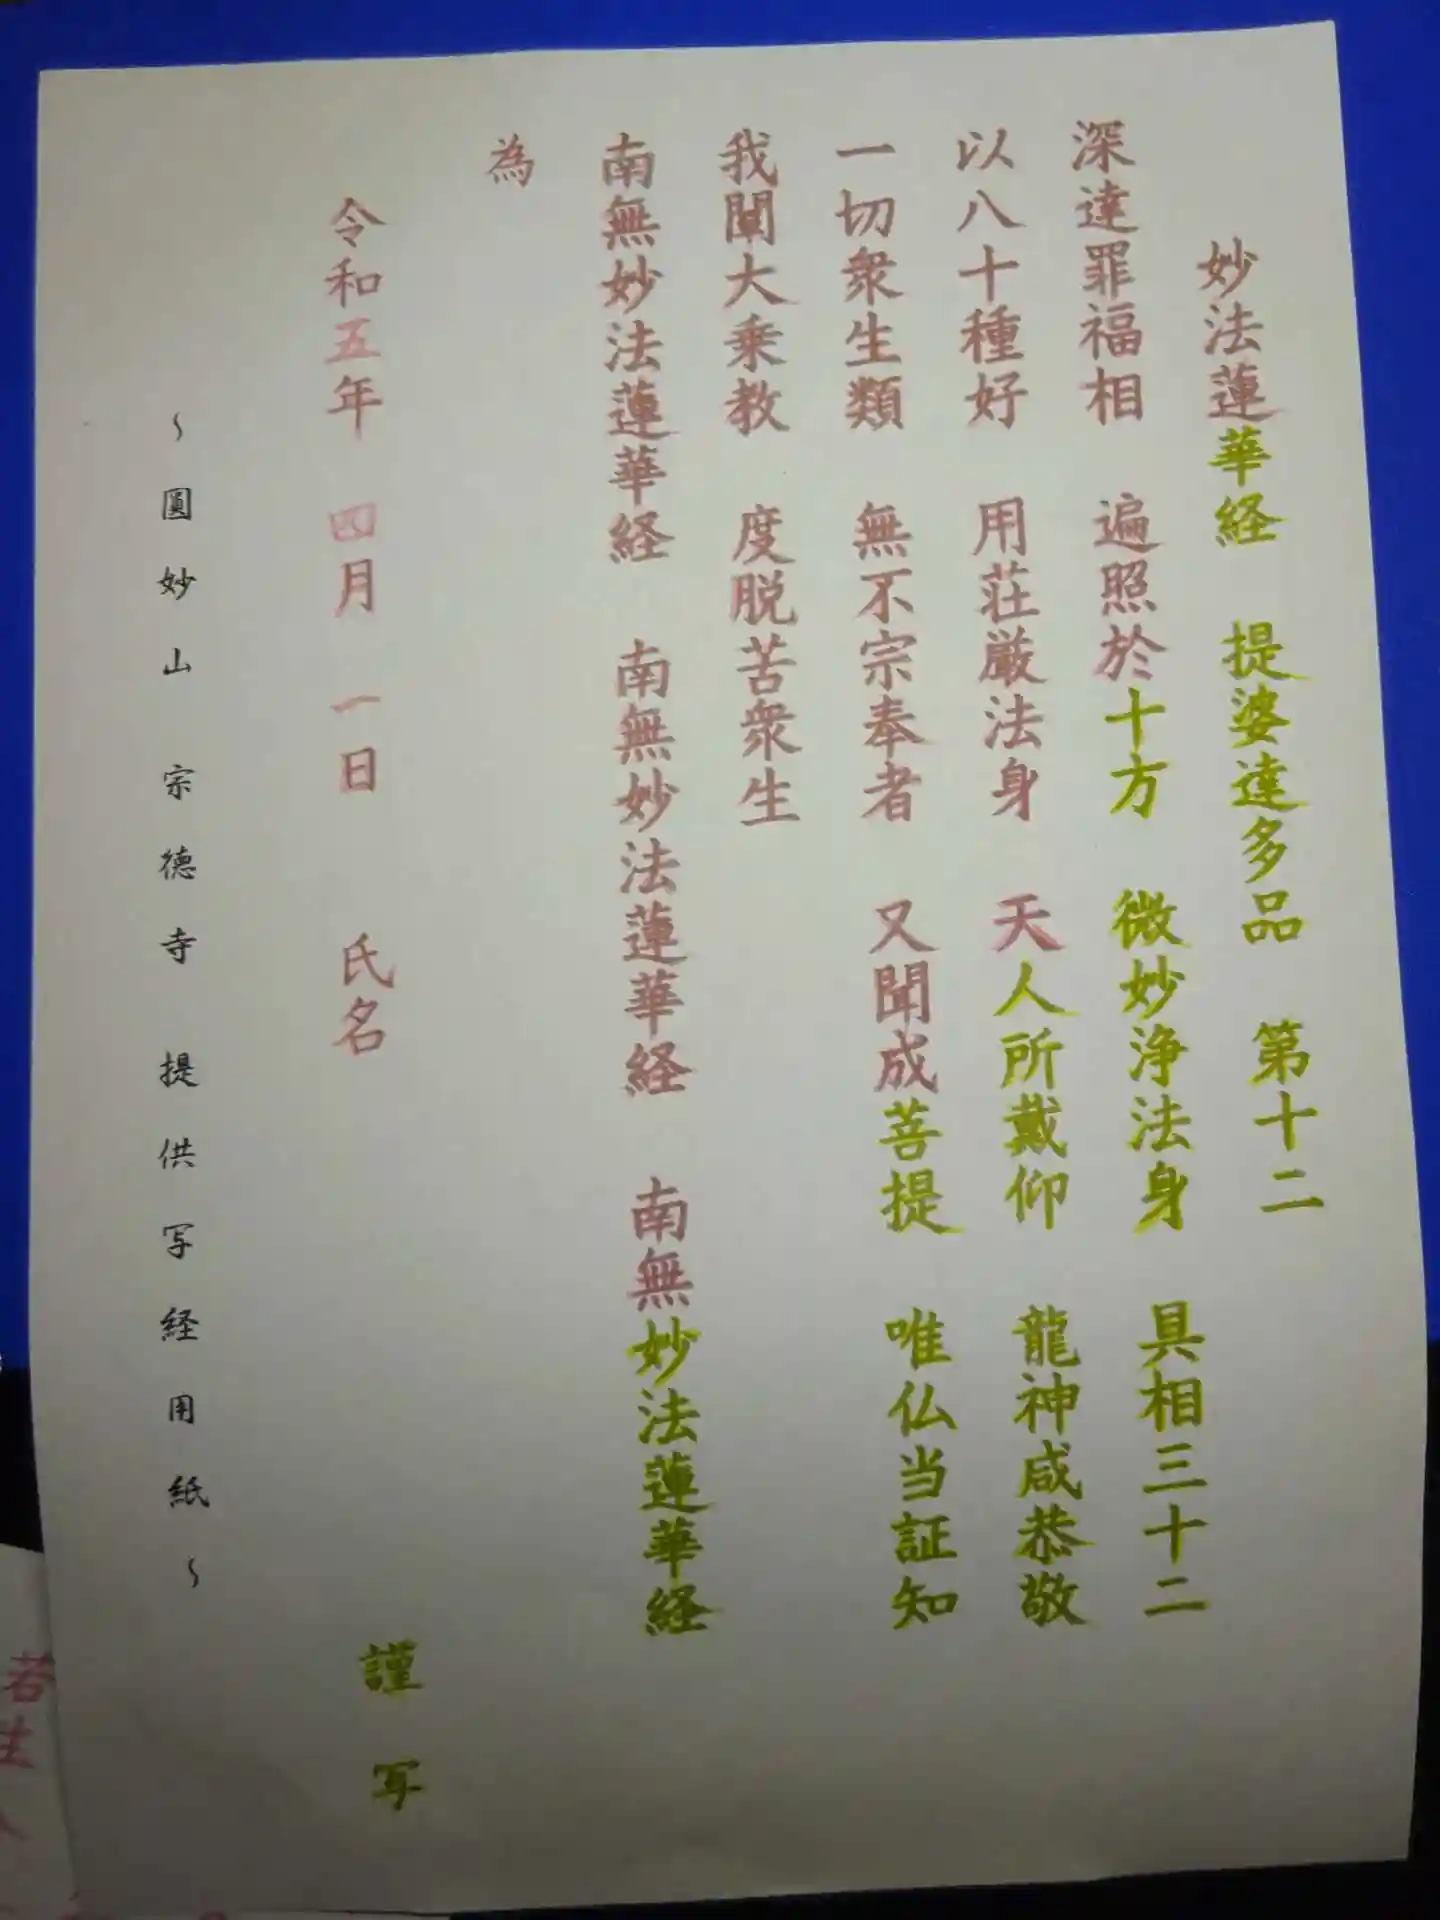 妙法蓮華経　提婆達多品　第十二
深達罪福相　遍照於十方　微妙浄法身　具相三十二
以八十種好　用荘厳法身　天人所戴仰　龍神咸恭敬
一切衆生類　無不宗奉者　又聞成菩提　唯仏当証知
我闡大乗教　度脱苦衆生
南無妙法蓮華経　南無妙法蓮華経　南無妙法蓮華経
為
令和五年　四月　一日　氏名　謹写
～圓妙山　宗徳寺　提供写経用紙～